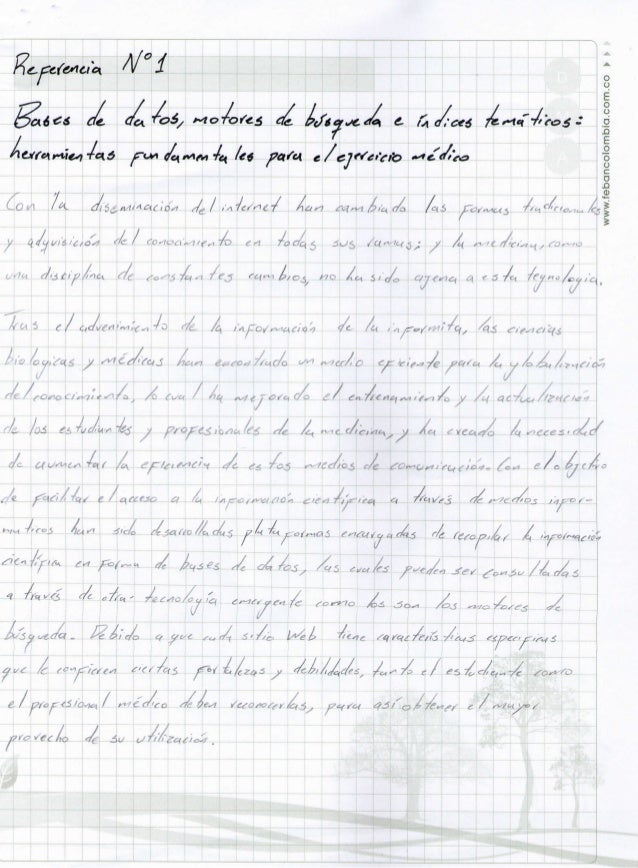 Referencia N° 1
Bases de datos, motores de búsqueda e índices temáticos:
herramientas fundamentales para el ejercicio médico
Con la diseminación del internet han cambiado las formas tradicionales
y adquisición del conocimiento en todas sus ramas; y la medicina, como
una disciplina de constantes cambios, no ha sido ajena a esta tegnologia.
Tras el advenimiento de la información de la informita, las ciencias
biologicas y médicas han encontrado un medio eficiente para la globalización
del conocimiento, lo cual ha mejorado el entrenamiento y la actualización
de los estudiantes y profesionales de la medicina, y ha creado la necesidad
de aumentar la eficiencia de estos medios de comunicación. Con el objetivo
de facilitar el acceso a la información científica a través de medios infor-
maticos han sido desarrolladas plataformas encargadas de recopilar la información
científica en forma de bases de datos, las cuales pueden ser consultadas
a través de otra tecnología emergente como los son los motores de
búsqueda. Debido a que cada sitio Web tiene características especificas
que le confieren ciertas fortalezas y debilidades, tanto el estudiante como
el profesional médico deben reconocerlas, para así obtener el mayor
provecho de su utilización.
www.febancolombia.com.co
D
A